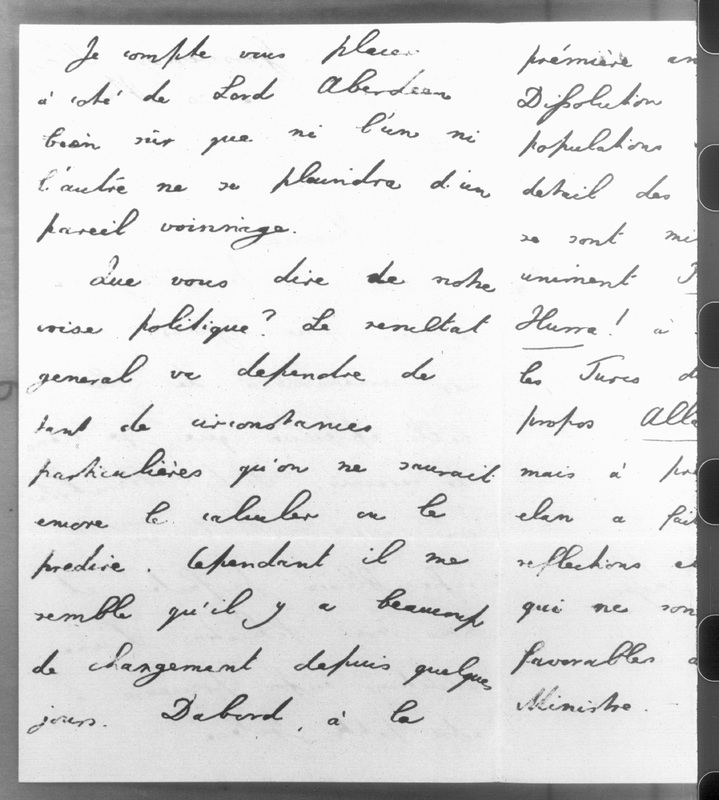 Je compte vous placer
à coté de Lord Aberdeen
bien sûr que ni l'un ni
l'autre ne se plaindra d'un
pareil voisinage.
Que vous dire de notre
crise politique? Le resultat
general va dependre de
tant de circonstances
particulières qu'on ne saurait
encore le calculer ou le
predire. Cependant il me
semble qu'il y a beaucoup
de changement depuis quelques
jours. Dabord, à la
prémière an
Dissolution
populations
detail des
se sont mi
uniment
Hurra! à
les Turcs d
propos Alla
mais à pré
elan a fait
reflections et
qui ne son
favorables a
Ministre.